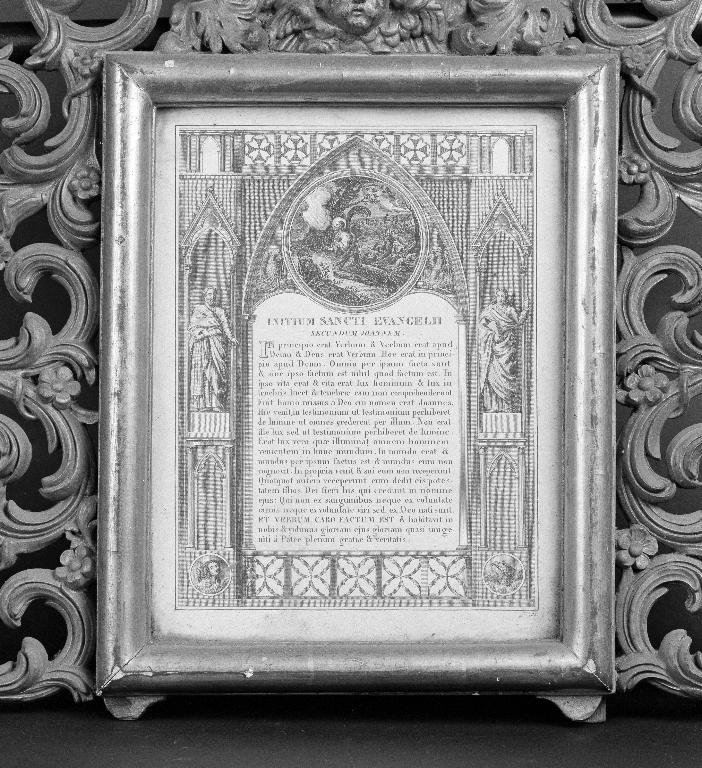 INITIUM SANCTI EVANGELII
SECUNDUM JOANNEM.
In principio erat Verbum & Verbum erat apud
Deum & Deus erat Verbum. Hoc erat in princi-
pio apud Deum. Omnia per ipsum facta sunt
& sine ipso factum est nihil quod factum est. In
ipso vita erat & vita erat lux hominum & lux in
tenebris lucet & tenebræ eam non comprehenderunt
Fuit homo missus a Deo cui nomen erat Joannes.
Hic venit in testimonium ut testimonium perhiberet
de lumine ut omnes crederent per illum. Non erat
ille lux sed ut testimonium perhiberet de lumine.
Erat lux vera quæ illuminat omnem hominem
venientem in hunc mundum. In mundo erat &
mundus per ipsum factus est & mundus eum non
cognovit. In propria venit & sui eum non receperunt
Quotquot autem receperunt eum dedit eis potes-
tatem filios Dei fieri his qui credunt in nomine
ejus: Qui non ex sanguinibus neque ex voluntate
carnis neque ex voluntate viri sed ex Deo nati sunt.
ET VERBUM CARO FACTUM EST & habitavit in
nobis & vidimus gloriam ejus gloriam quasi unige-
niti à Patre plenum gratiæ & veritatis.